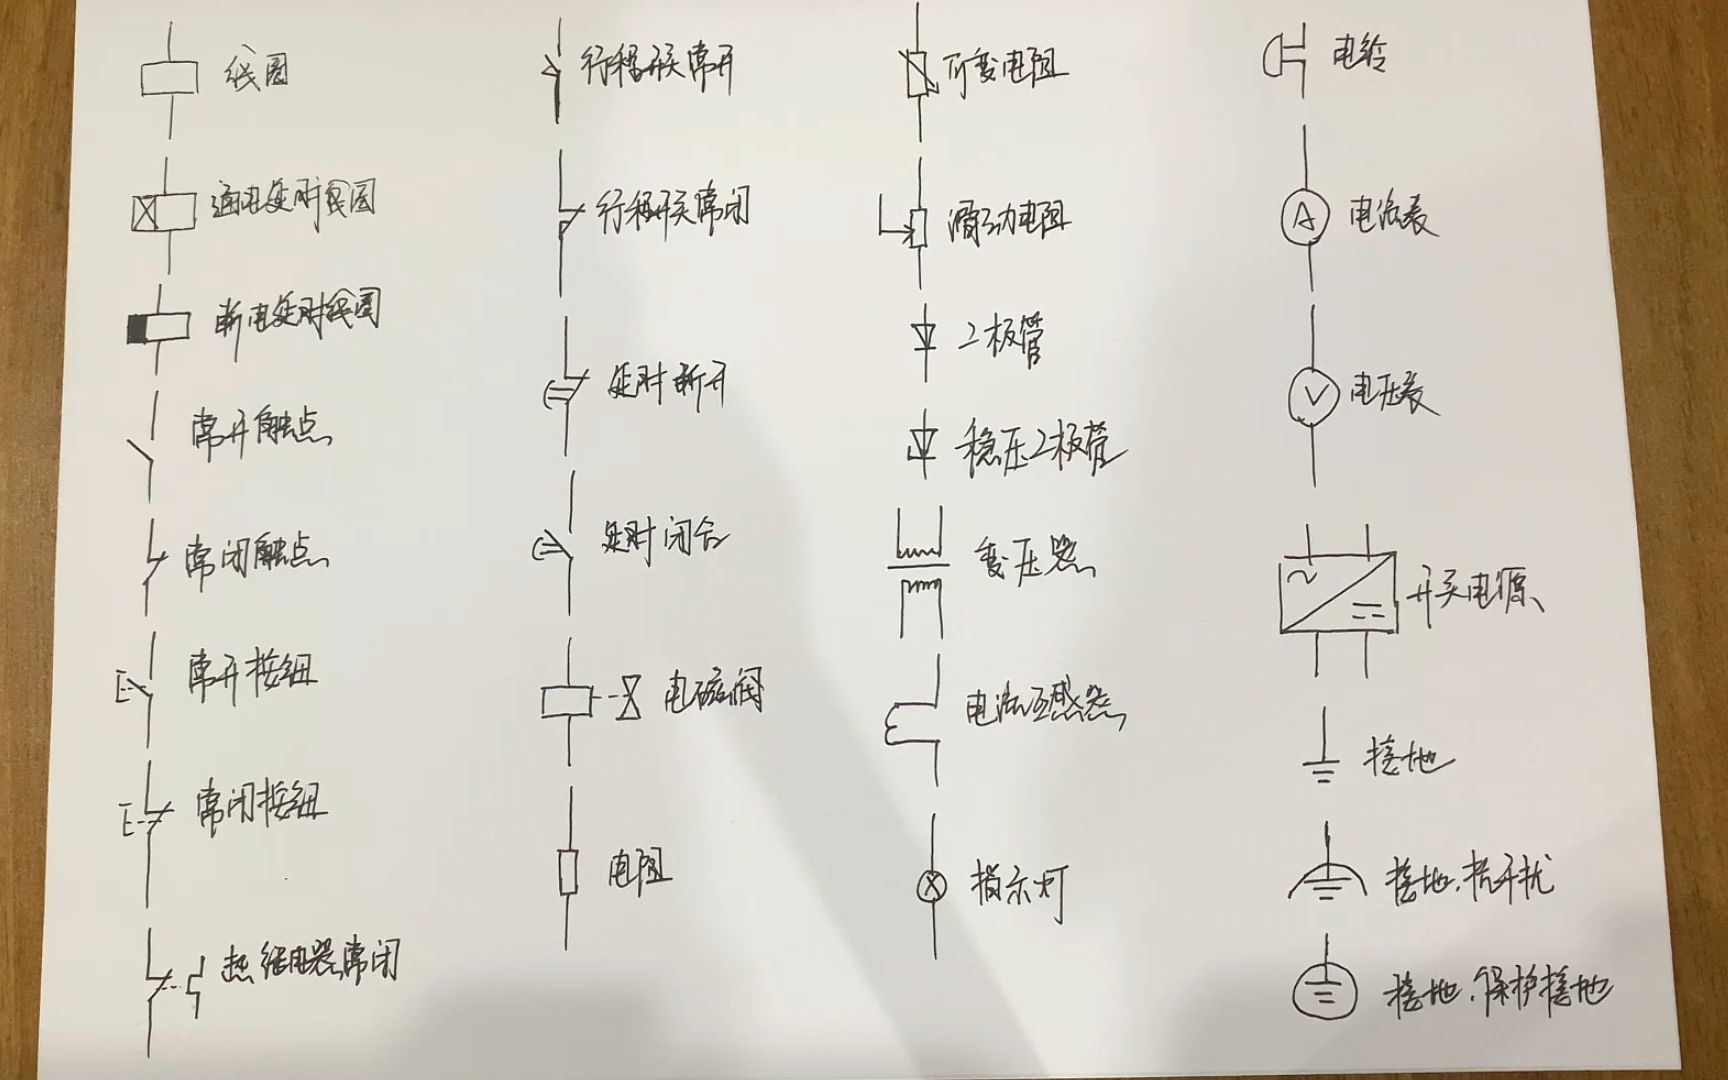 线圈
通电延时线圈
断电延时线圈
常开触点
常闭触点
常开按钮
常闭按钮
热继电器常闭
行程开关常开
行程开关常闭
延时断开
延时闭合
电磁阀
电阻
可变电阻
滑动电阻
2极管
稳压2极管
变压器
电流互感器
指示灯
电铃
A 电流表
V 电压表
开关电源
接地
接地.抗干扰
接地.保护接地